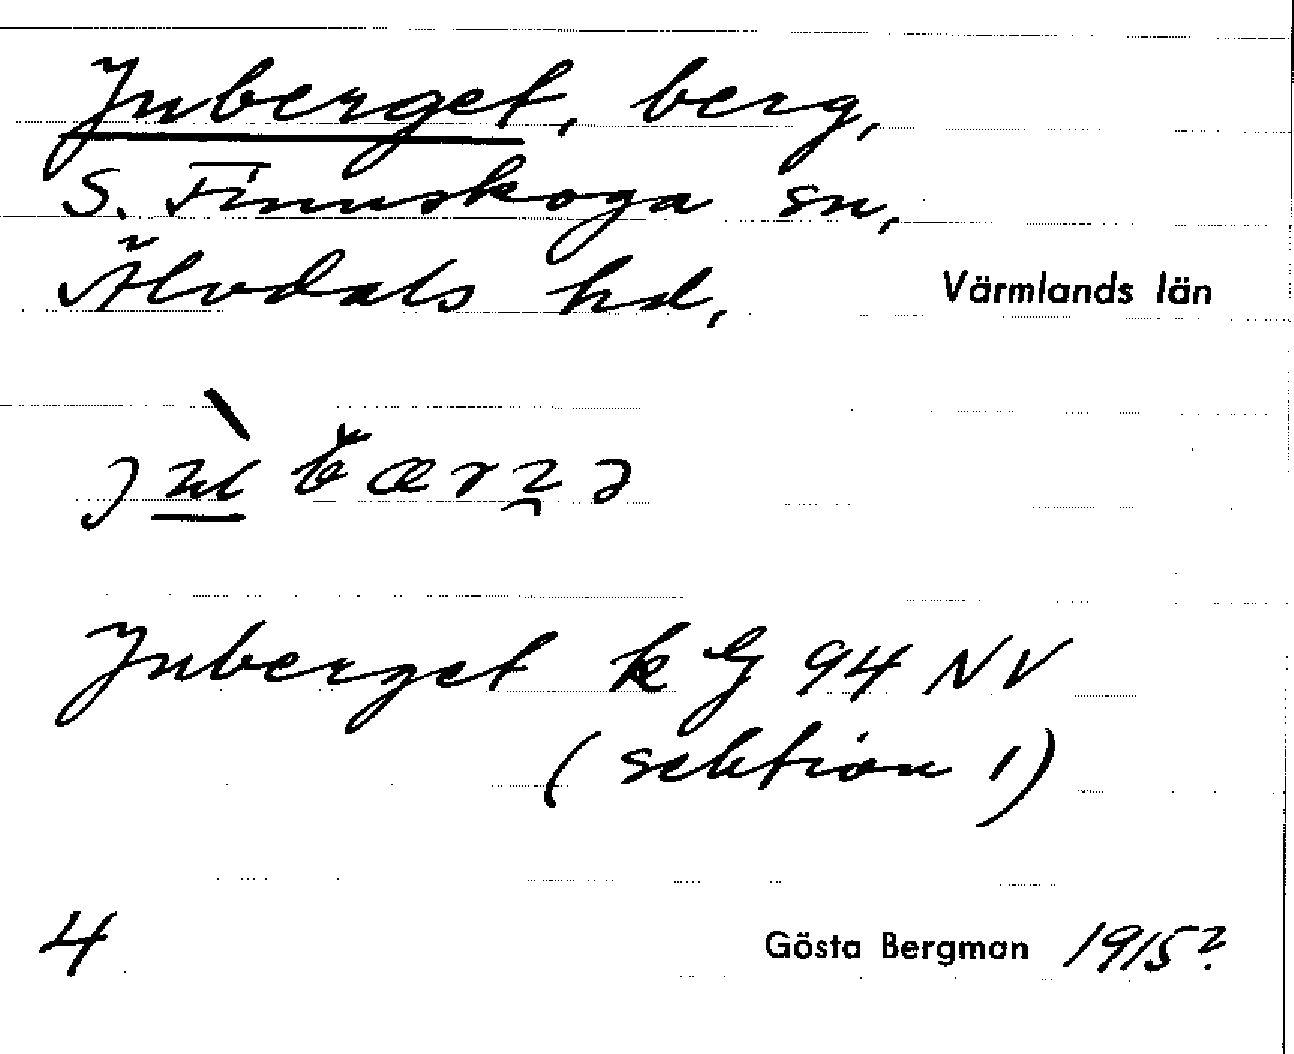 Juberget, berg,
S. Finnskoga sn,
Älvdals hd, Värmlands län
Juberget k G 94 NV
(sektion 1)
4 Gösta Bergman 1915?